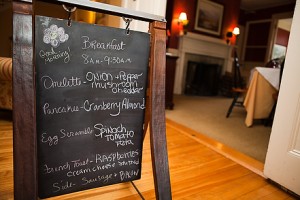 Good
Morning
Breakfast
8AM-9:30AM
Omelette-ONION + Pepper
mushroom
cheddar
Pancakes-Cranberry Almond
Egg Scramble-Spinach
Tomato
Feta
French Toast-RASPBERRIES
cream cheese
Side-Sausage & BACON